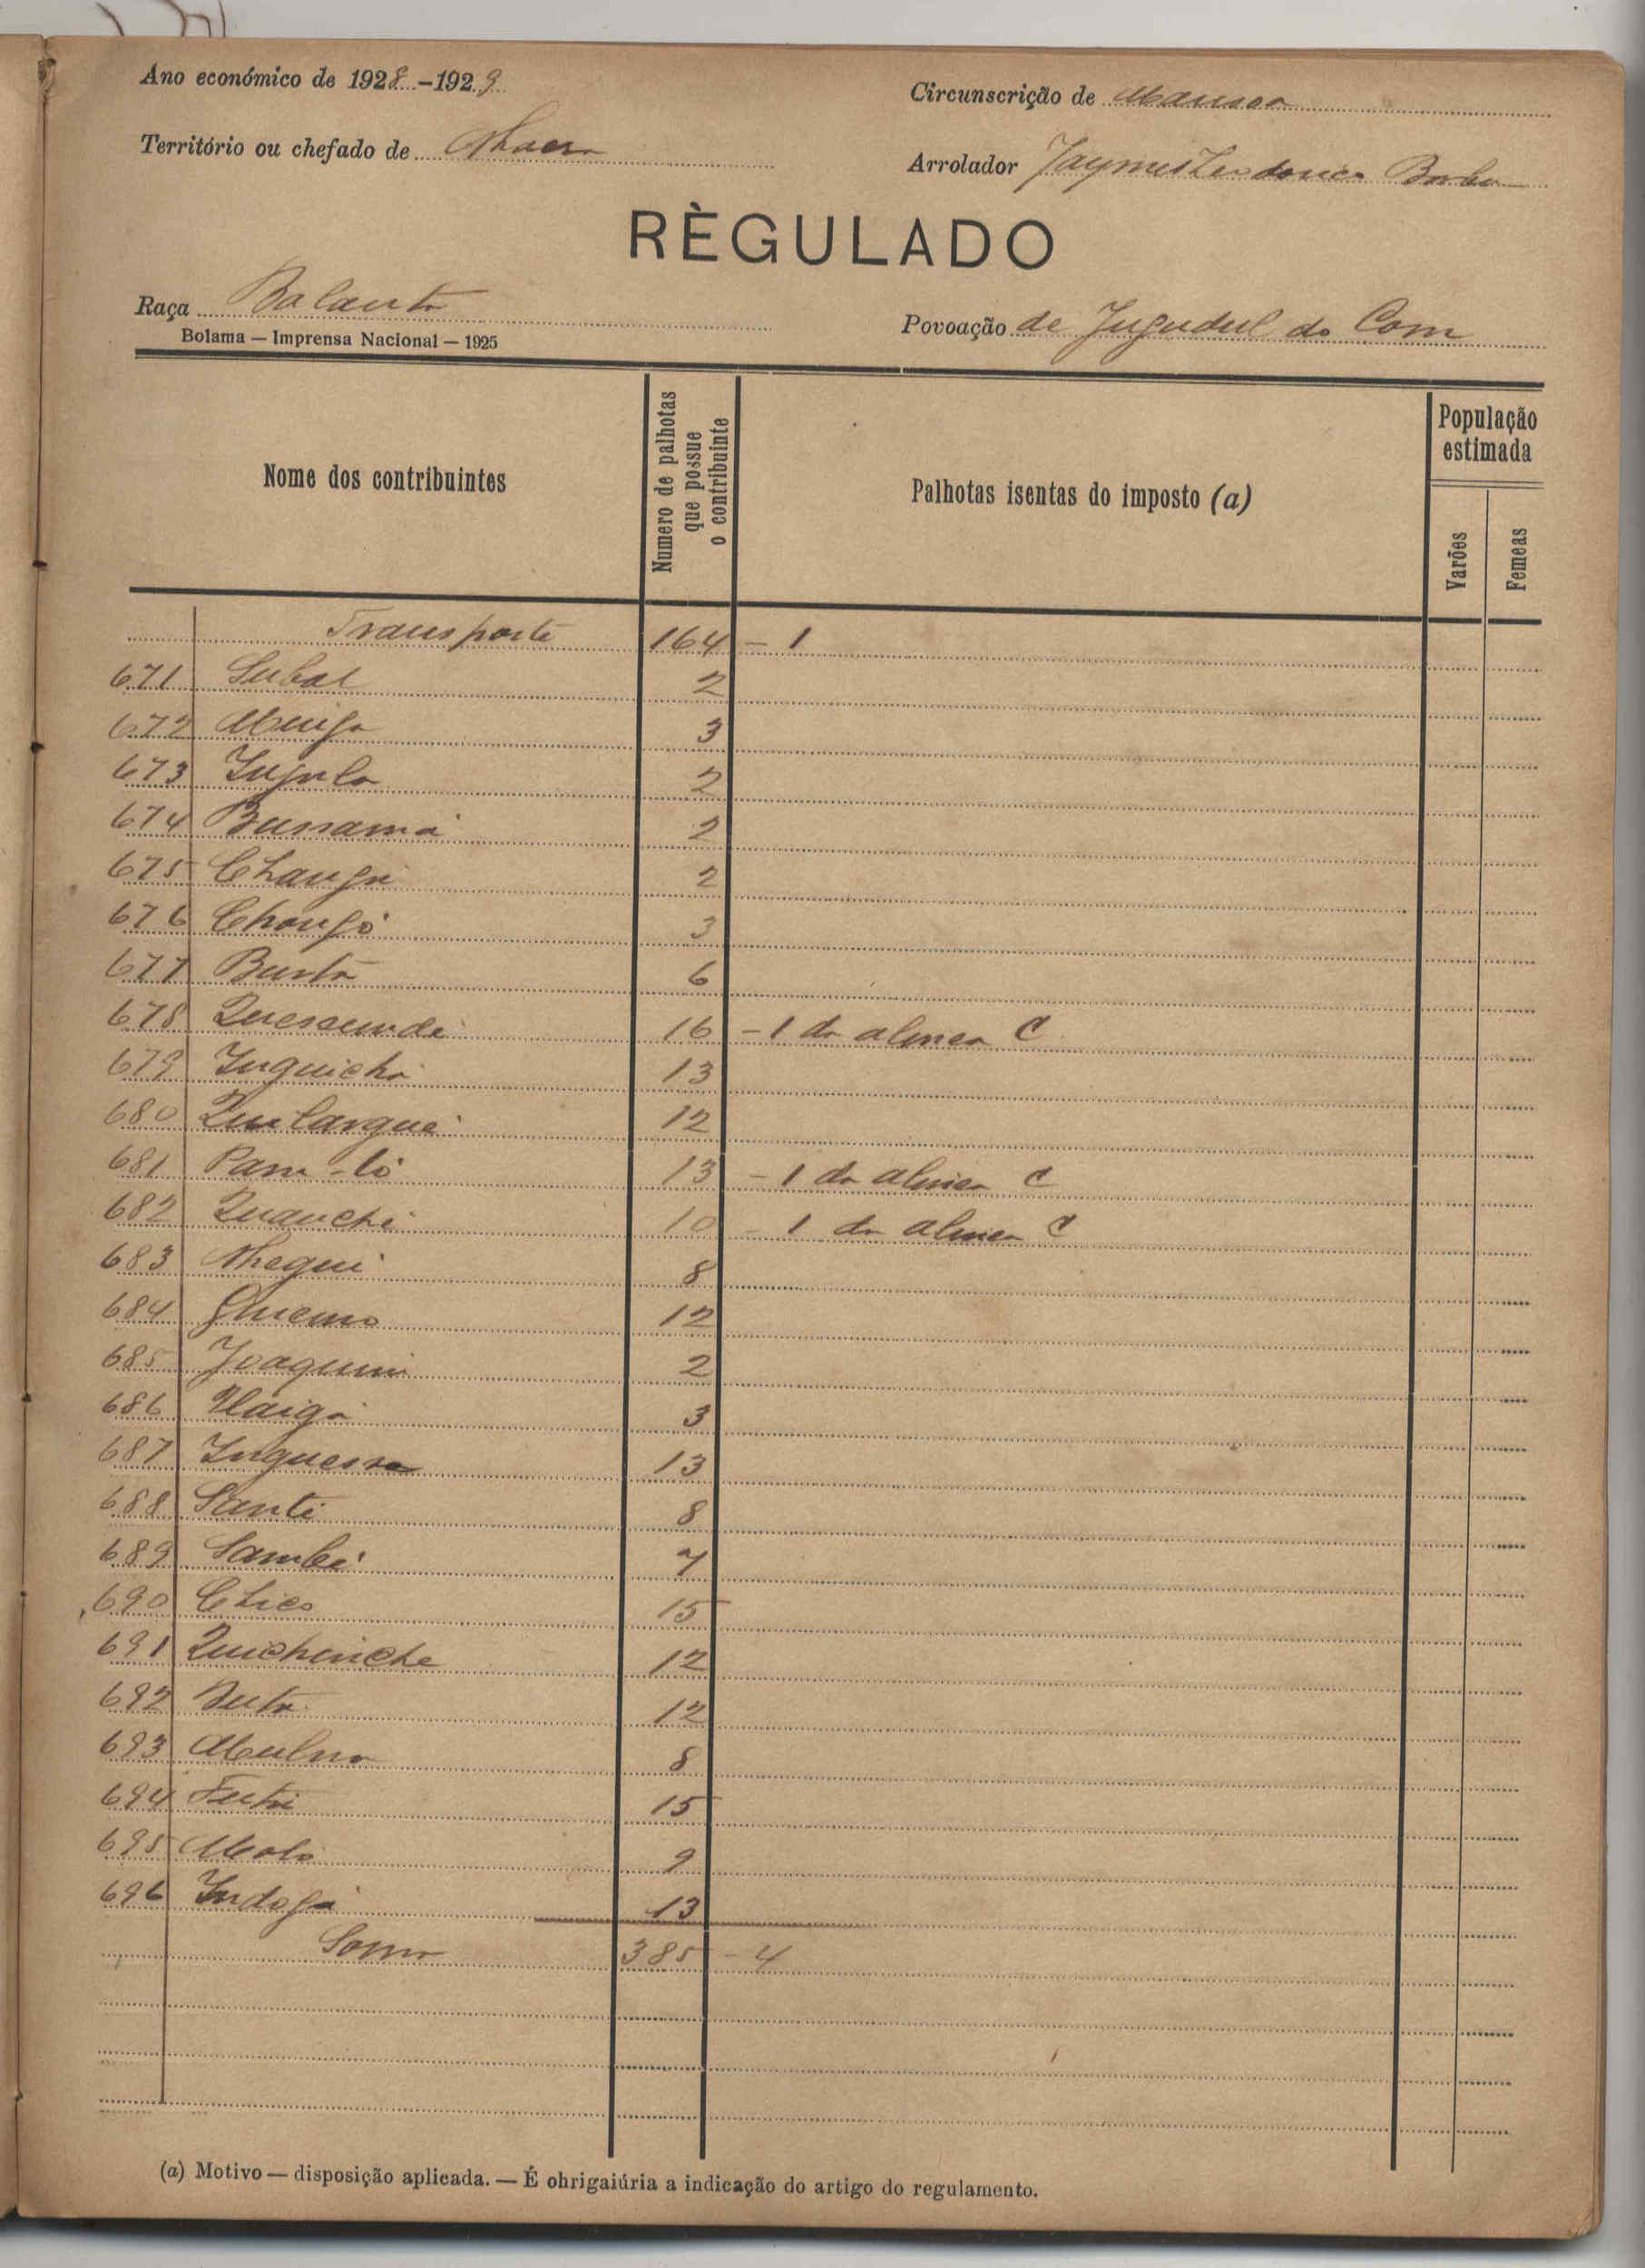 Ano económico de 1928-1929
Circunscrição de Mansoa
Território ou chefado de Nhacra
Arrolador Jayme Barbo
RÈGULADO
Raça Balanta
Povoação de Jugudul do Com
Bolama — Imprensa Nacional — 1925
Nome dos contribuintes
Numero de palhotas que possue o contribuinte
Palhotas isentas do imposto (a)
População estimada
Varões
Femeas
Transporte 164 - 1
671 Subal 2
672 3
673 2
674 Bunamá 2
675 2
676 3
677 6
678 16 - 1 da alinea C
679 Inguicha 13
680 12
681 13 - 1 da alinea C
682 Quanchi 10 - 1 da alinea C
683 Nhegui 8
684 12
685 Joaquim 2
686 3
687 Inguessa 13
688 Santi 8
689 Sambé 7
690 Chico 15
691 Quichinche 12
692 12
693 8
694 15
695 9
696 13
Soma 385 - 4
(a) Motivo — disposição aplicada. — É ohrigaiúria a indicação do artigo do regulamento.